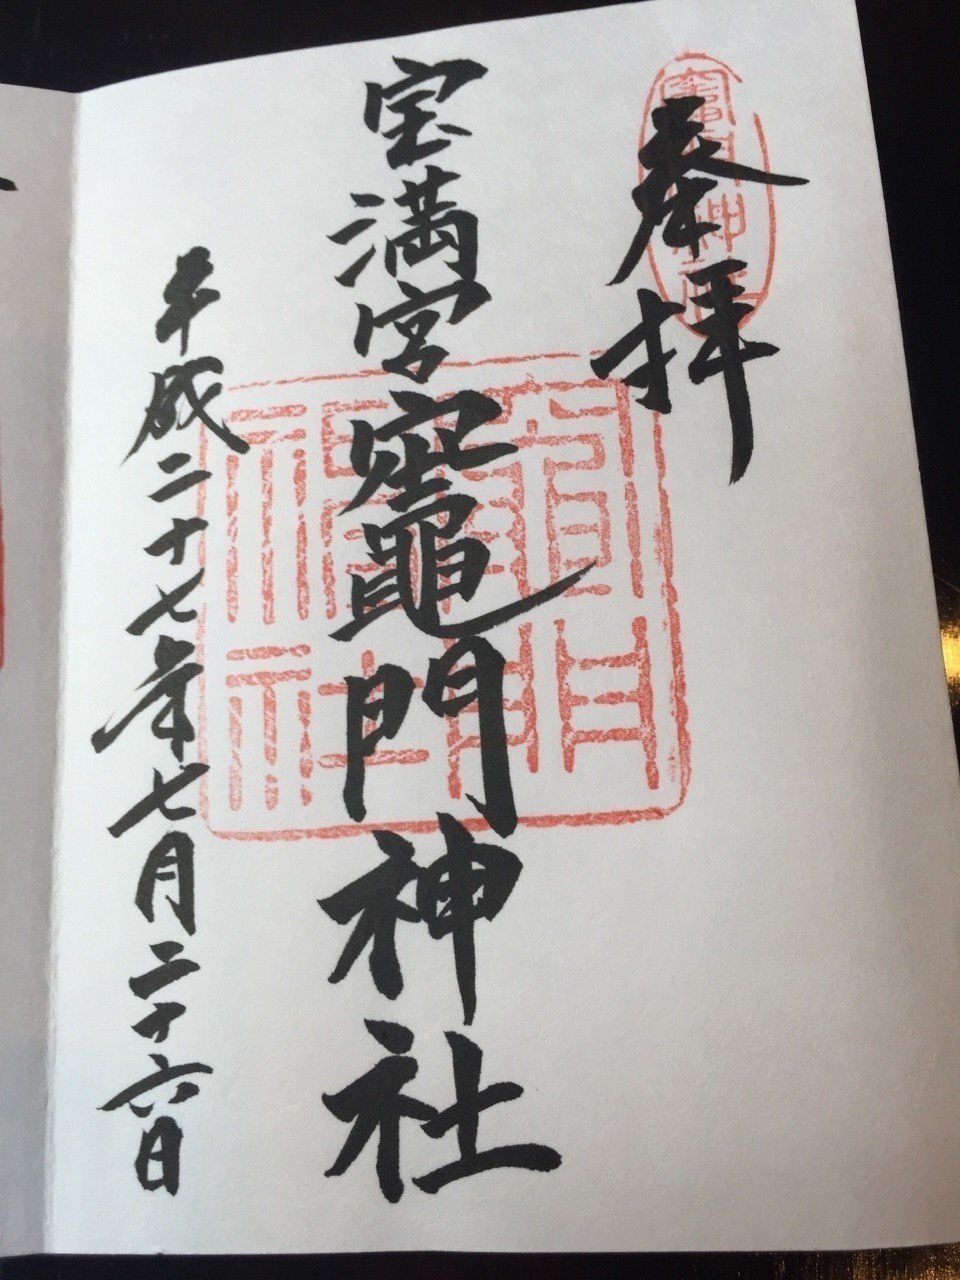 奉拝
宝満宮竈門神社
平成二十七年七月二十六日
竈門神社
竈門神社